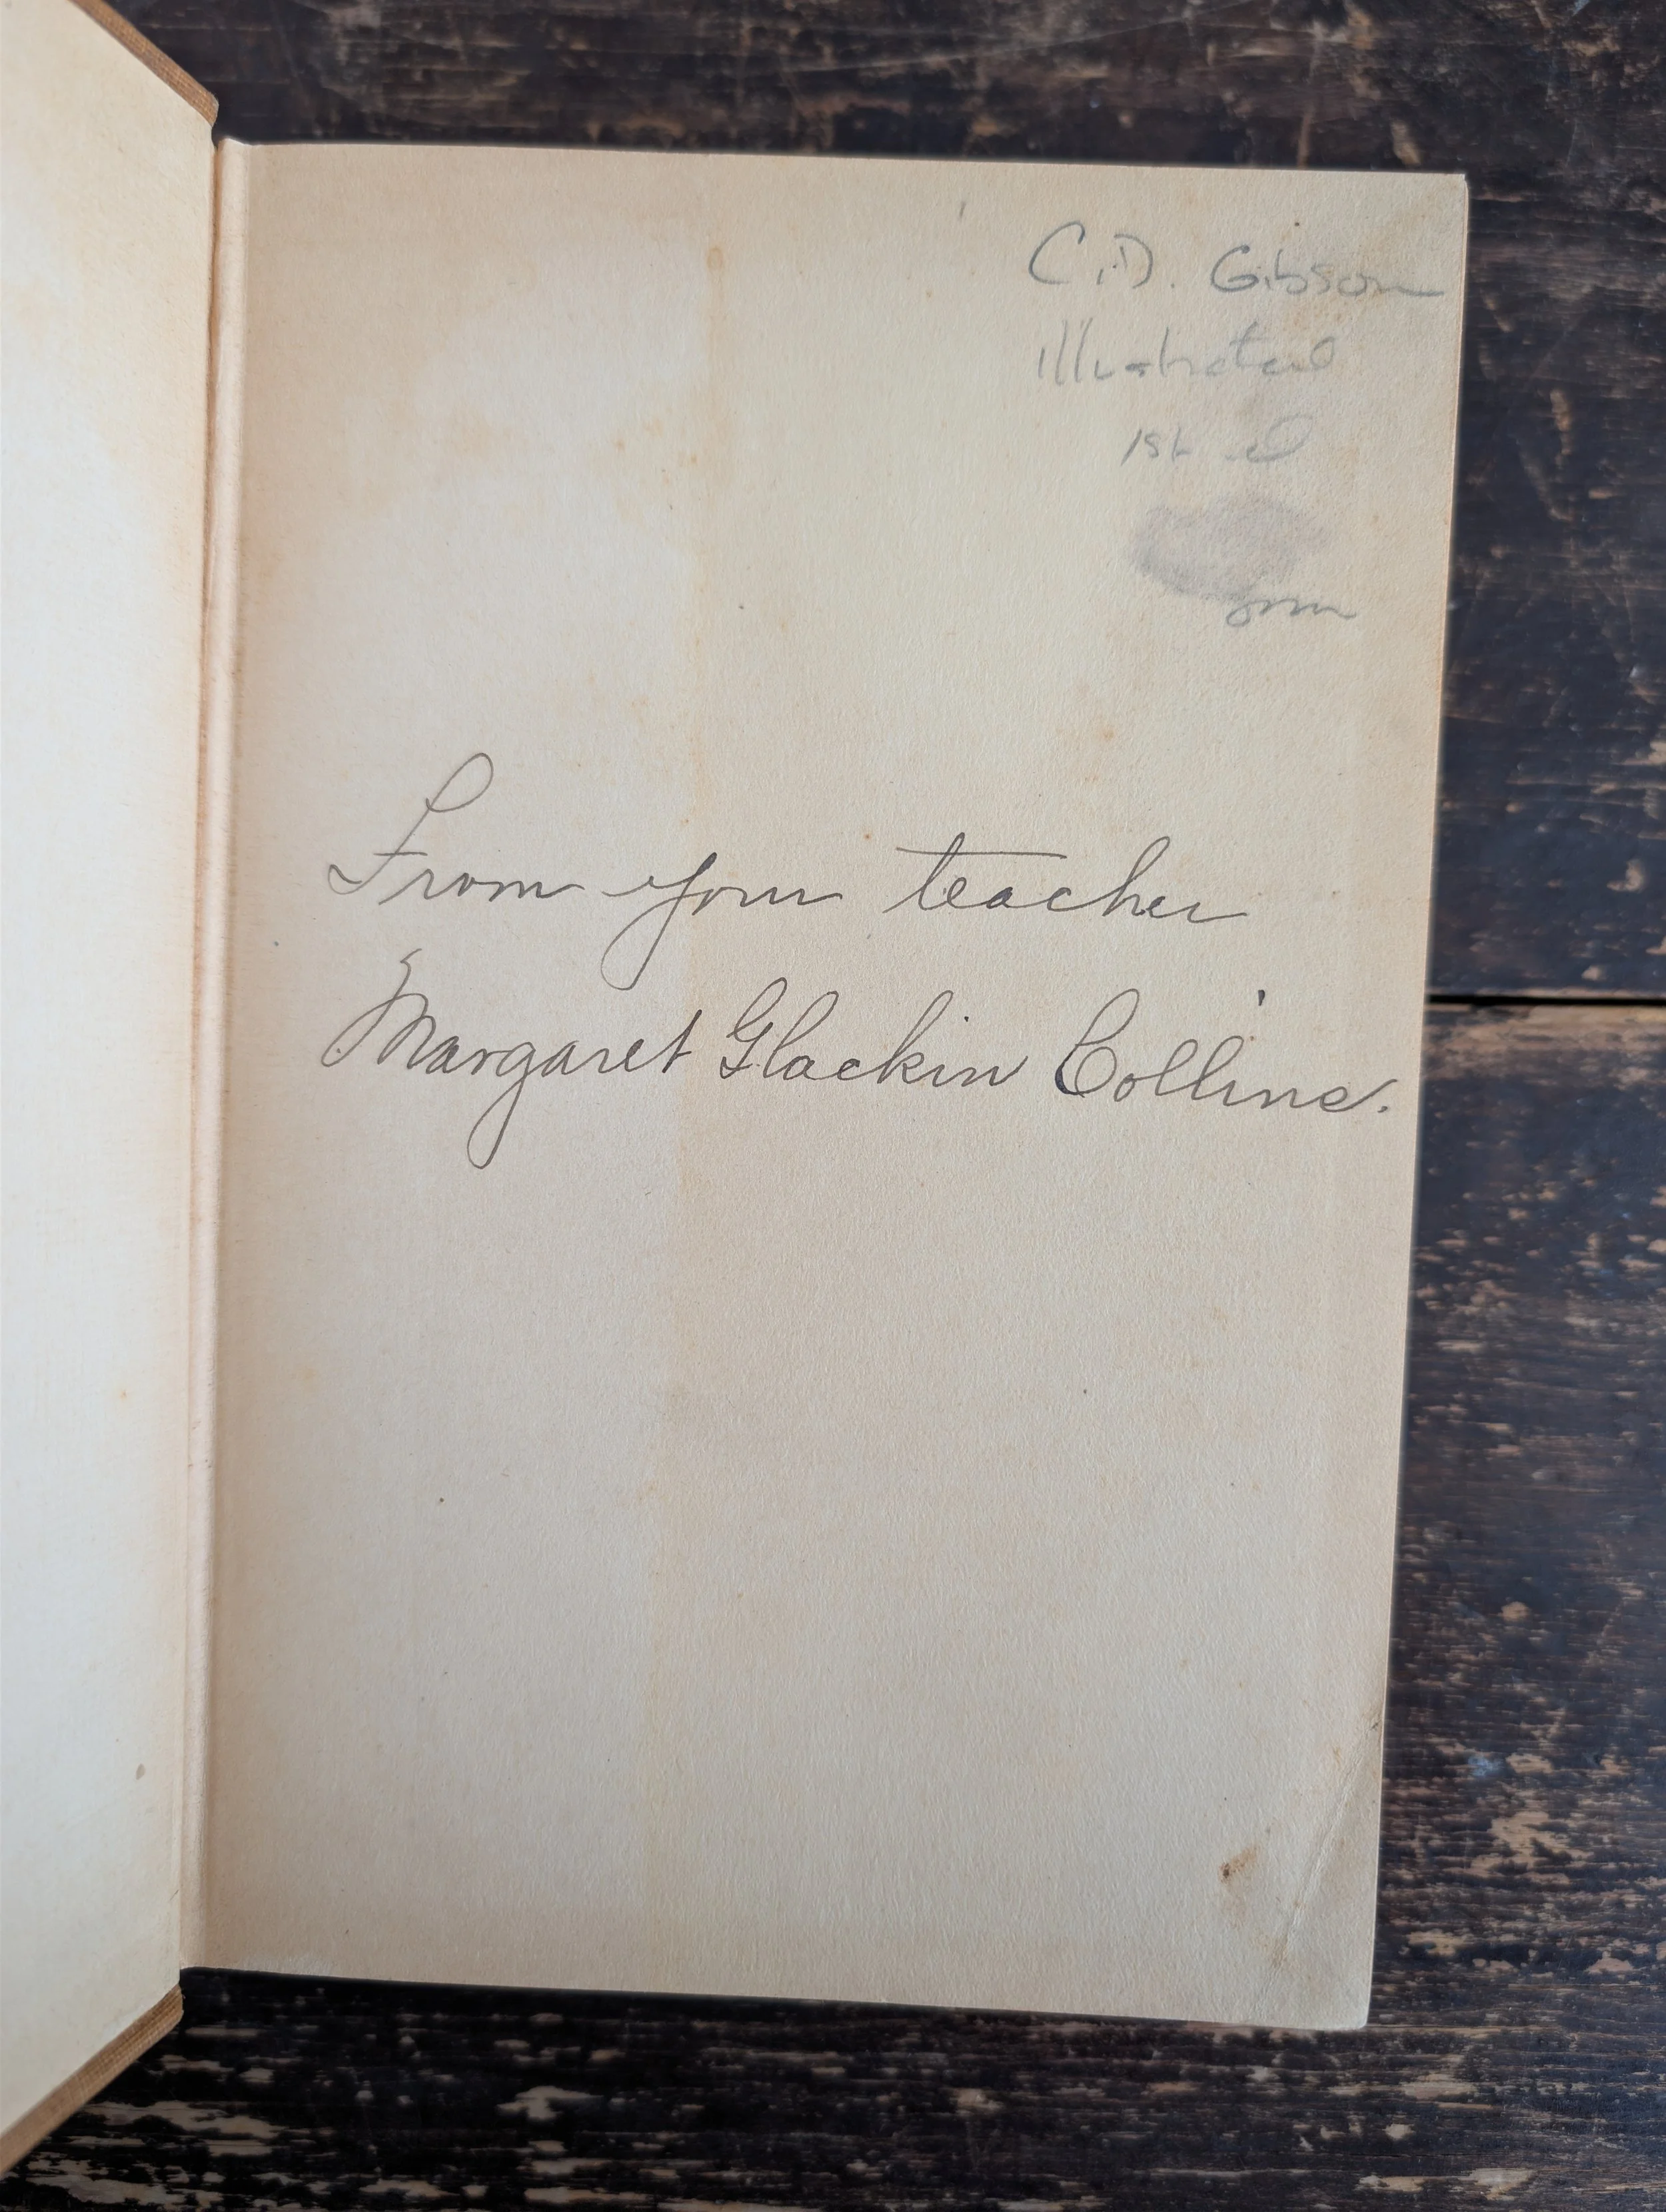 C.D. Gibson
Illustrated
1st ed
From your teacher
Margaret Glackin Collins.